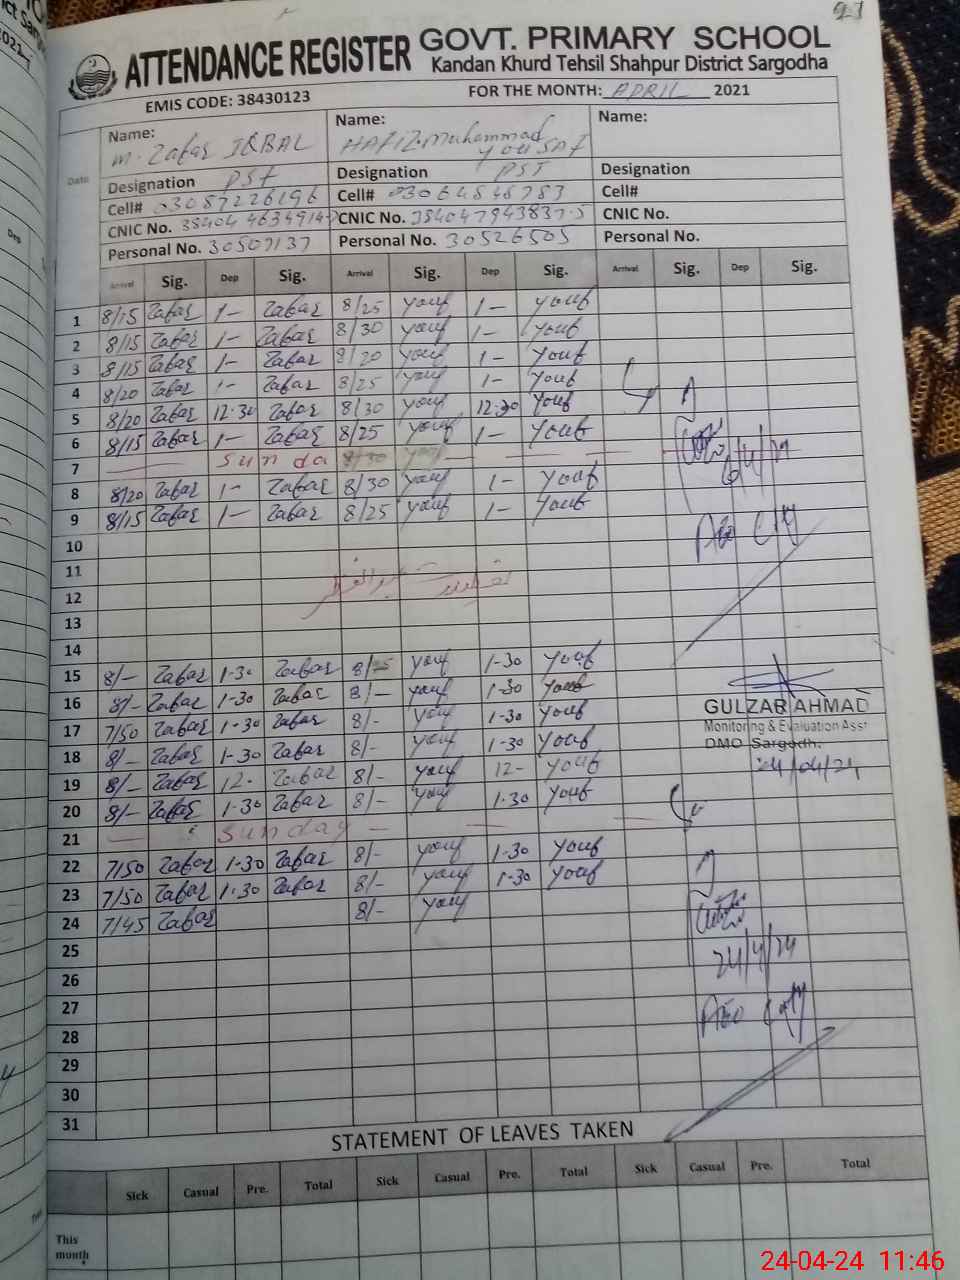 ATTENDANCE REGISTER GOVT. PRIMARY SCHOOL
Kandan Khurd Tehsil Shahpur District Sargodha
EMIS CODE: 38430123 FOR THE MONTH: APRIL 2021
Date Name: Name: Name:
M. Zafar IQBAL HAFIZ Muhammad YOUSAF
Designation PST Designation PST Designation
Cell# 03087226196 Cell# 03064846783 Cell#
CNIC No. CNIC No. CNIC No.
Personal No. 30507137 Personal No. 30526505 Personal No.
Arrival Sig. Dep Sig. Arrival Sig. Dep Sig. Arrival Sig. Dep Sig.
1 8/15 Zafar 1- Zafar 8/25 youf 1- youf
2 8/15 Zafar 1- Zafar 8/30 youf 1- youf
3 8/15 Zafar 1- Zafar 8/20 youf 1- youf
4 8/20 Zafar 1- Zafar 8/25 youf 1- youf
5 8/20 Zafar 12-30 Zafar 8/30 youf 12-30 youf
6 8/15 Zafar 1- Zafar 8/25 youf 1- youf
7 Sunda 8/30
8 8/20 Zafar 1- Zafar 8/30 youf 1- youf
9 8/15 Zafar 1- Zafar 8/25 youf 1- youf
10
11
12
13
14
15 8/- Zafar 1-30 Zafar 8/ youf 1-30 youf
16 8/- Zafar 1-30 Zafar 8/- youf 1-30 youf
17 7/50 Zafar 1-30 Zafar 8/- youf 1-30 youf
18 8/- Zafar 1-30 Zafar 8/- youf 1-30 youf
19 8/- Zafar 12- Zafar 8/- youf 12- youf
20 8/- Zafar 1-30 Zafar 8/- youf 1-30 youf
21 Sunday
22 7/50 Zafar 1-30 Zafar 8/- youf 1-30 youf
23 7/50 Zafar 1-30 Zafar 8/- youf 1-30 youf
24 7/45 Zafar 8/- youf
25
26
27
28
29
30
31
6/4/24
GULZAR AHMAD
Monitoring & Evaluation Asst
DMO Sargodh.
24/04/24
24/4/24
STATEMENT OF LEAVES TAKEN
Sick Casual Pre. Total Sick Casual Pre. Total Sick Casual Pre. Total
This
month
24-04-24 11:46